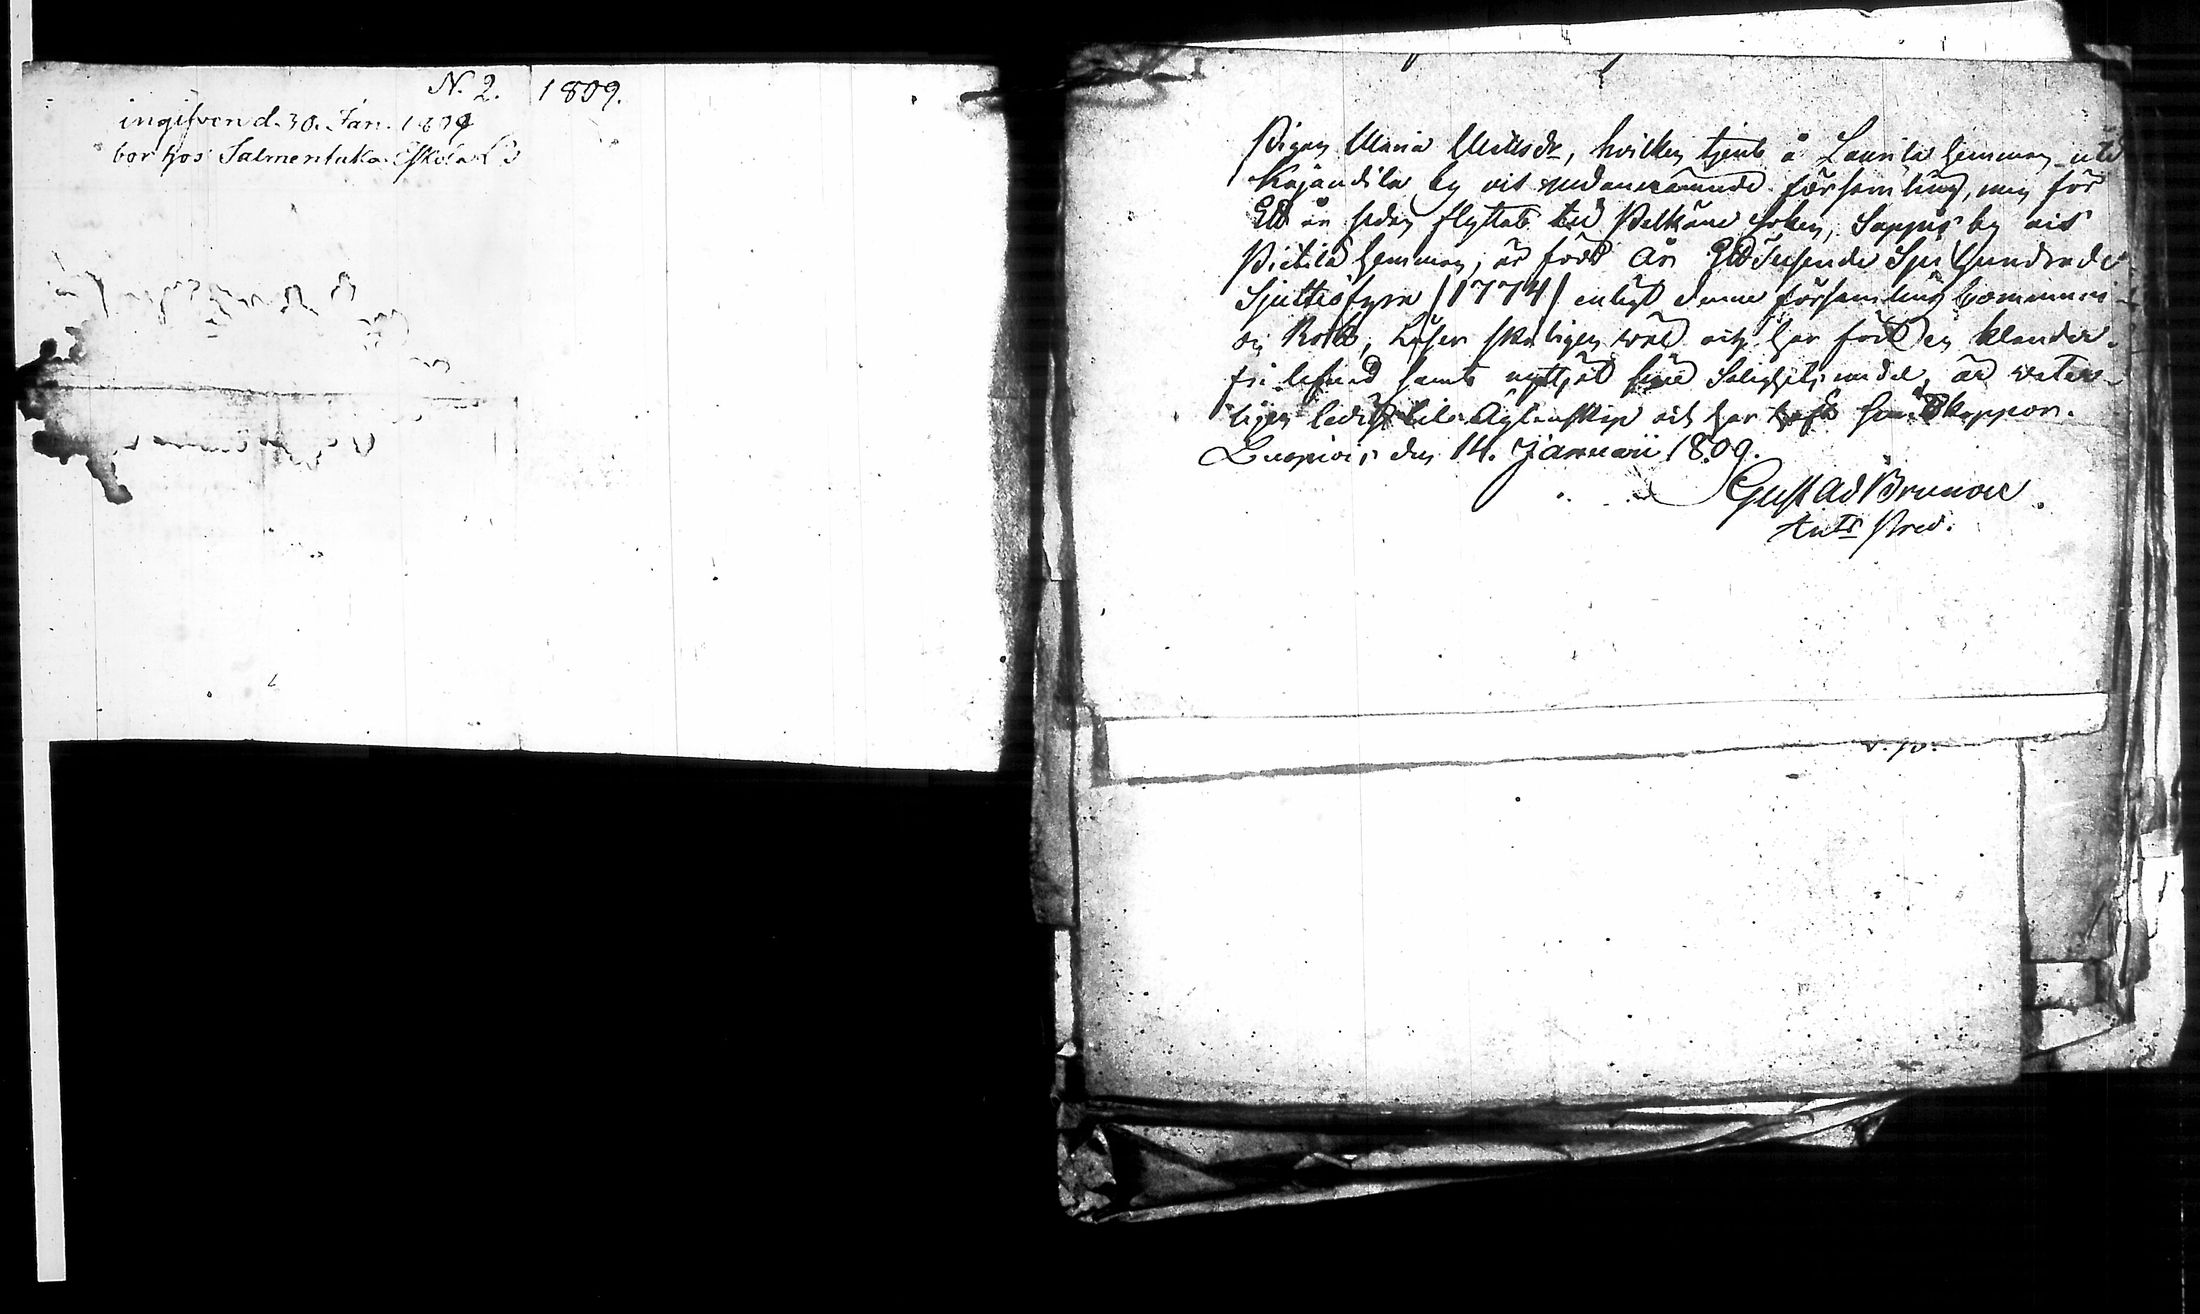 N. 2. 1809.
ingifven d. 30. Jan. 1809
bor hos Salmentaka Eskola
Pigan Maria Mattsdr, hvilken tjent å Laurila hemman uti
Kajandila by vid nedannämnde församling, men för
Ett år sedan flyttat till Pelkäne Socken, Sappis by och
Pietilä hemman, är född År Ett Tusende Sju Hundrade
Sjuttiofyra /1774/ enligt denne församlings Communi-
on Bok, Läser skäligen wäl och har fört en klander-
fri lefnad samt nyttjat sine Salighets medel, är veter-
ligen ledig til Ägtenskap och har haft Koppor.
Luopiois den 14. Januarii 1809.
Gust Ad Brunou
Pred.